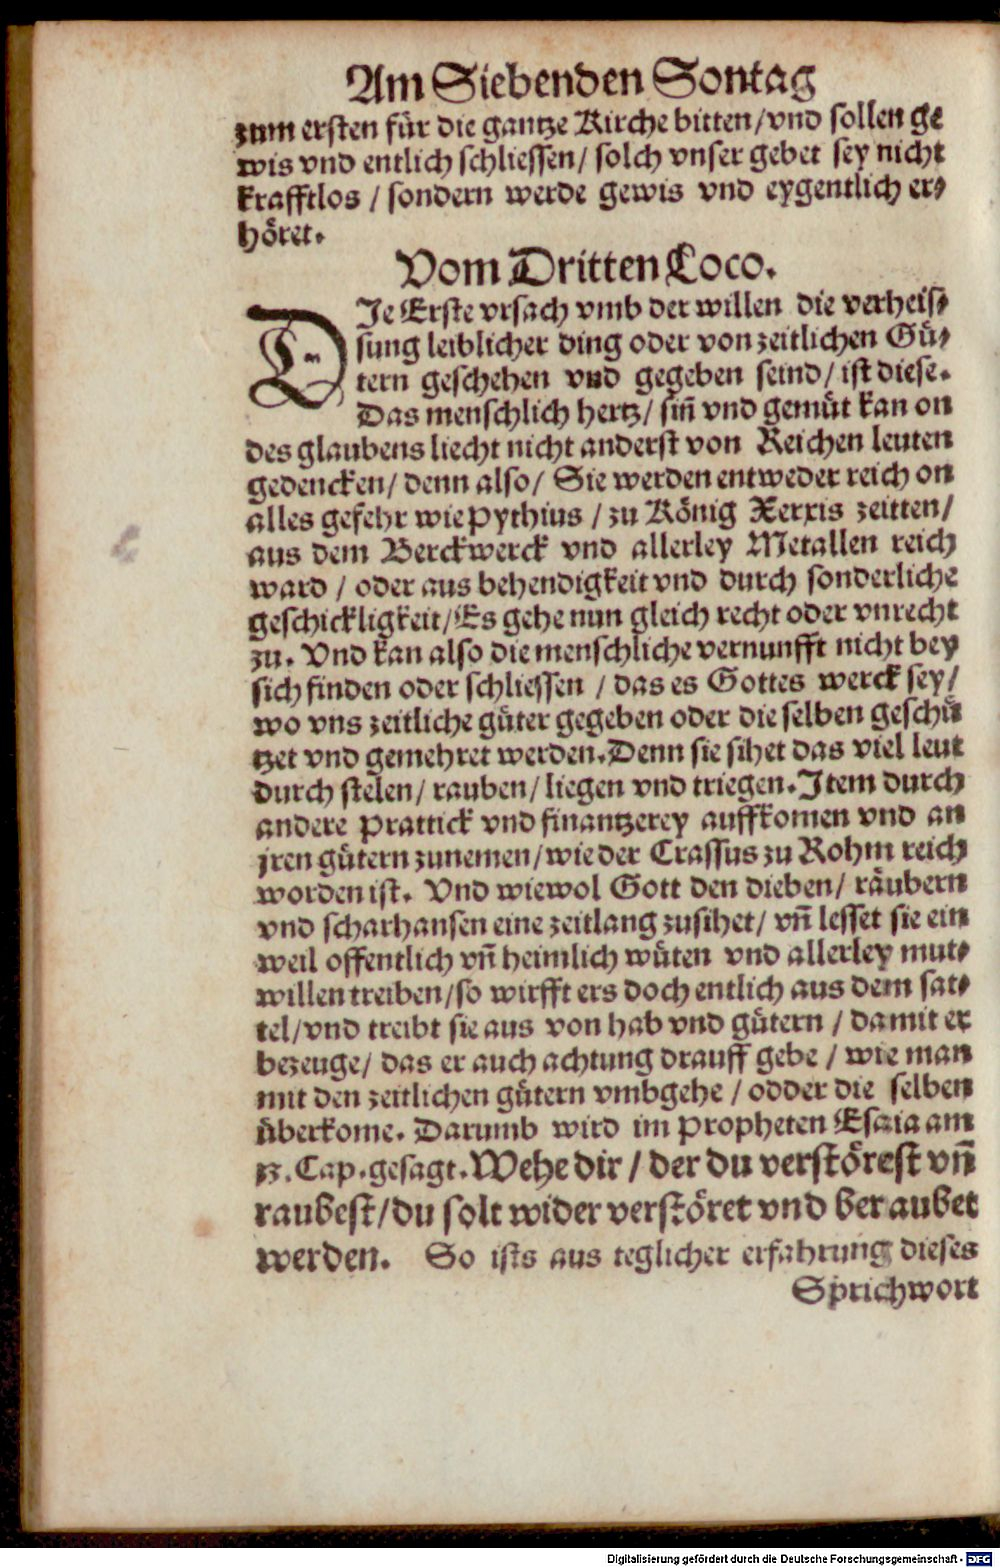 Am Siebenden Sontag
zum ersten für die gantze Kirche bitten/vnd sollen ge
wis vnd entlich schliessen/ solch vnser gebet sey nicht
krafftlos / sondern werde gewis vnd eygentlich er⸗
höret.
Vom Dritten Loco.
DJe Erste vrsach vmb der willen die verheis⸗
sung leiblicher ding oder von zeitlichen Gü⸗
tern geschehen vnd gegeben seind/ ist diese.
Das menschlich hertz/ siñ vnd gemüt kan on
des glaubens liecht nicht anderst von Reichen leuten
gedencken/ denn also/ Sie werden entweder reich on
alles gefehr wie Pythius / zu König Xerxis zeitten/
aus dem Berckwerck vnd allerley Metallen reich
ward / oder aus behendigkeit vnd durch sonderliche
geschickligkeit/ Es gehe nun gleich recht oder vnrecht
zu. Vnd kan also die menschliche vernunfft nicht bey
sich finden oder schliessen / das es Gottes werck sey/
wo vns zeitliche güter gegeben oder die selben geschü
tzet vnd gemehret werden. Denn sie sihet das viel leut
durch stelen/ rauben/ liegen vnd triegen. Jtem durch
andere Prattick vnd finantzerey auffkomen vnd an
jren gütern zunemen/ wie der Crassus zu Rohm reich
worden ist. Vnd wiewol Gott den dieben/ räubern
vnd scharhansen eine zeitlang zusihet/ vñ lesset sie ein
weil offentlich vñ heimlich wüten vnd allerley mut⸗
willen treiben/so wirfft ers doch entlich aus dem sat⸗
tel/vnd treibt sie aus von hab vnd gütern / damit er
bezeuge/ das er auch achtung drauff gebe / wie man
mit den zeitlichen gütern vmbgehe / odder die selben
überkome. Darumb wird im Propheten Esaia am
Cap. gesagt. Wehe dir / der du verstörest vñ
raubest/du solt wider verstöret vnd beraubet
werden. So ists aus teglicher erfahrung dieses
Sprichwort
Digitalisierung gefördert durch die Deutsche Forschungsgemeinschaft - DFG